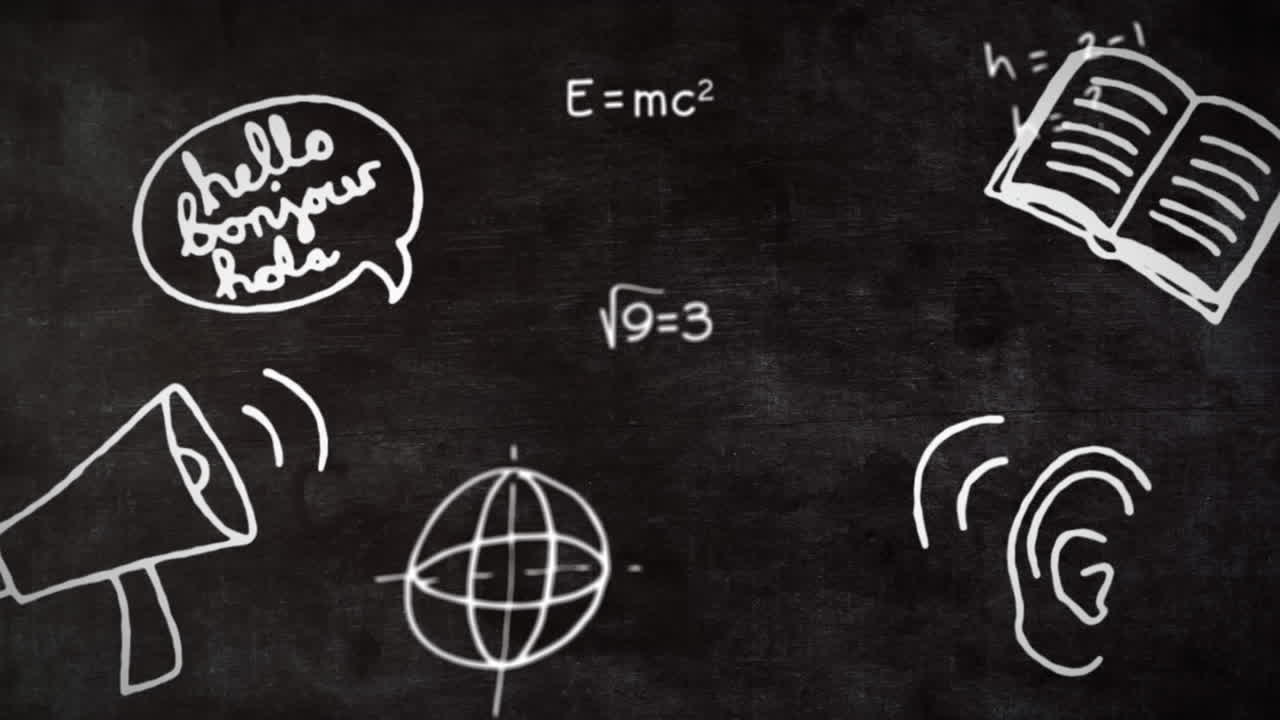 hello
bonjour
hola
E=mc²
√9=3